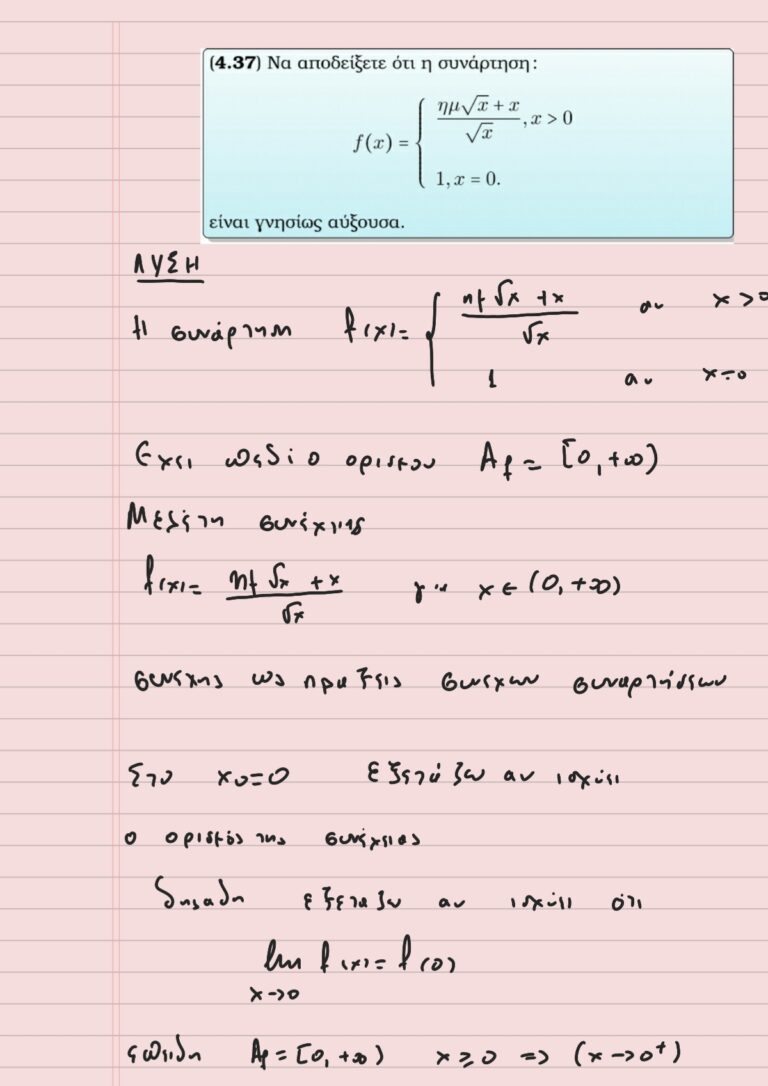 (4.37) Να αποδείξετε ότι η συνάρτηση:
f(x) = { (ημ√x + x)/√x, x > 0
1, x = 0.
είναι γνησίως αύξουσα.
ΛΥΣΗ
Η συνάρτηση f(x) = { (ημ√x + x)/√x αν x > 0
1 αν x = 0
Εχει πεδίο ορισμου A_f = [0, +∞)
Μελέτη συνέχειας
f(x) = (ημ√x + x)/√x για x ∈ (0, +∞)
συνεχης ως πραξεις συνεχων συναρτήσεων
Στο x₀=0 εξετάζω αν ισχύει
ο ορισμός της συνέχειας
δηλαδη εξεταζω αν ισχύει ότι
lim f(x) = f(0)
x→0
επειδη A_f = [0, +∞) x ≥ 0 => (x→0⁺)